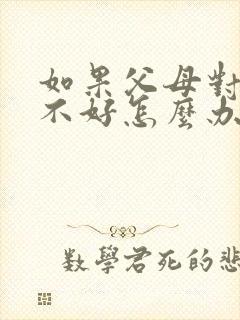 如果父母對
不好怎麼办
數學君死的悲